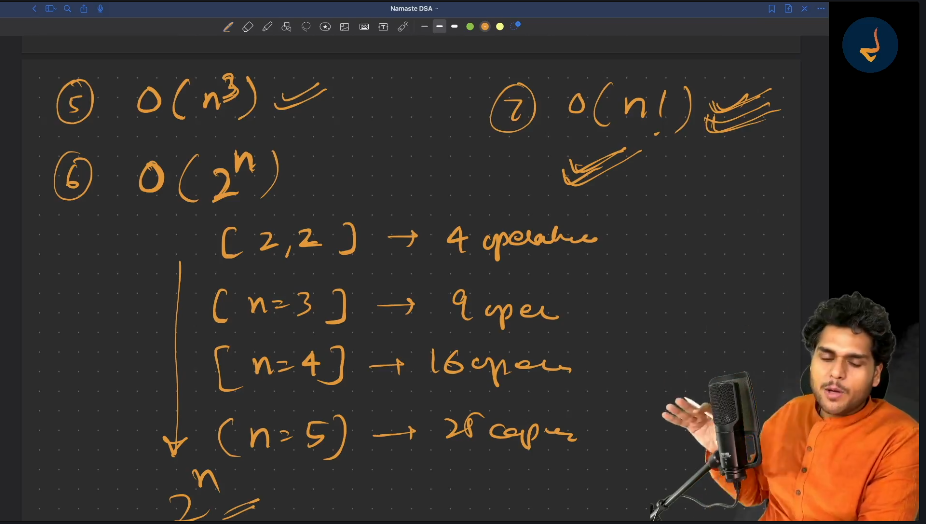 Namaste DSA
⑤ O(n³)
⑦ O(n!)
⑥ O(2ⁿ)
[2,2] → 4 operations
[n=3] → 9 oper
[n=4] → 16 opers
(n=5) → 25 oper
2ⁿ